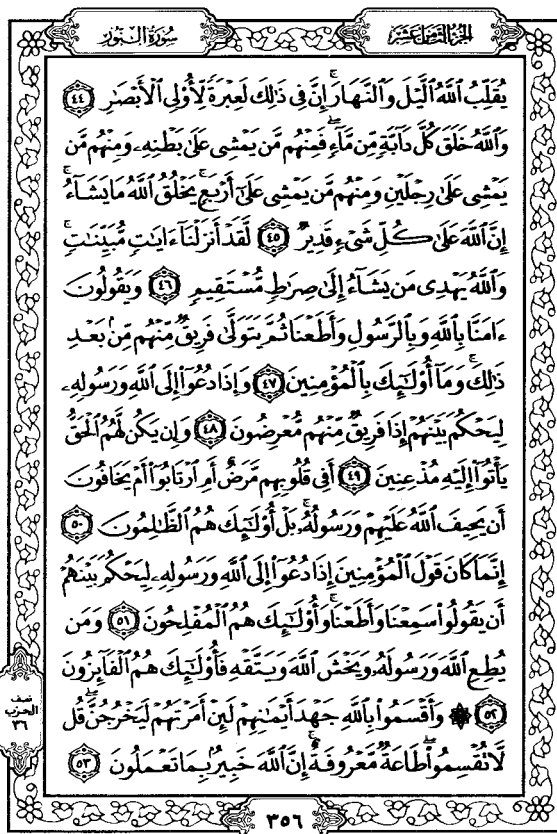 الجزء الثامن عشر
سورة النور
يُقَلِّبُ ٱللَّهُ ٱلَّيۡلَ وَٱلنَّهَارَۚ إِنَّ فِى ذَٰلِكَ لَعِبۡرَةً لِّأُوْلِى ٱلۡأَبۡصَٰرِ ٤٤
وَٱللَّهُ خَلَقَ كُلَّ دَآبَّةٍ مِّن مَّآءٍۖ فَمِنۡهُم مَّن يَمۡشِى عَلَىٰ بَطۡنِهِۦ وَمِنۡهُم مَّن
يَمۡشِى عَلَىٰ رِجۡلَيۡنِ وَمِنۡهُم مَّن يَمۡشِى عَلَىٰٓ أَرۡبَعٍۚ يَخۡلُقُ ٱللَّهُ مَا يَشَآءُۚ
إِنَّ ٱللَّهَ عَلَىٰ كُلِّ شَىۡءٍ قَدِيرٌ ٤٥ لَّقَدۡ أَنزَلۡنَآ ءَايَٰتٍ مُّبَيِّنَٰتٍۚ
وَٱللَّهُ يَهۡدِى مَن يَشَآءُ إِلَىٰ صِرَٰطٍ مُّسۡتَقِيمٍ ٤٦ وَيَقُولُونَ
ءَامَنَّا بِٱللَّهِ وَبِٱلرَّسُولِ وَأَطَعۡنَا ثُمَّ يَتَوَلَّىٰ فَرِيقٌ مِّنۡهُم مِّنۢ بَعۡدِ
ذَٰلِكَۚ وَمَآ أُوْلَٰٓئِكَ بِٱلۡمُؤۡمِنِينَ ٤٧ وَإِذَا دُعُوٓاْ إِلَى ٱللَّهِ وَرَسُولِهِۦ
لِيَحۡكُمَ بَيۡنَهُمۡ إِذَا فَرِيقٌ مِّنۡهُم مُّعۡرِضُونَ ٤٨ وَإِن يَكُن لَّهُمُ ٱلۡحَقُّ
يَأۡتُوٓاْ إِلَيۡهِ مُذۡعِنِينَ ٤٩ أَفِى قُلُوبِهِم مَّرَضٌ أَمِ ٱرۡتَابُوٓاْ أَمۡ يَخَافُونَ
أَن يَحِيفَ ٱللَّهُ عَلَيۡهِمۡ وَرَسُولُهُۥۚ بَلۡ أُوْلَٰٓئِكَ هُمُ ٱلظَّٰلِمُونَ ٥٠
إِنَّمَا كَانَ قَوۡلَ ٱلۡمُؤۡمِنِينَ إِذَا دُعُوٓاْ إِلَى ٱللَّهِ وَرَسُولِهِۦ لِيَحۡكُمَ بَيۡنَهُمۡ
أَن يَقُولُواْ سَمِعۡنَا وَأَطَعۡنَاۚ وَأُوْلَٰٓئِكَ هُمُ ٱلۡمُفۡلِحُونَ ٥١ وَمَن
يُطِعِ ٱللَّهَ وَرَسُولَهُۥ وَيَخۡشَ ٱللَّهَ وَيَتَّقۡهِ فَأُوْلَٰٓئِكَ هُمُ ٱلۡفَآئِزُونَ
٥٢ ۞ وَأَقۡسَمُواْ بِٱللَّهِ جَهۡدَ أَيۡمَٰنِهِمۡ لَئِنۡ أَمَرۡتَهُمۡ لَيَخۡرُجُنَّۖ قُل
لَّا تُقۡسِمُواْۖ طَاعَةٌ مَّعۡرُوفَةٌۚ إِنَّ ٱللَّهَ خَبِيرُۢ بِمَا تَعۡمَلُونَ ٥٣
نصف
الحزب
٣٦
٣٥٦